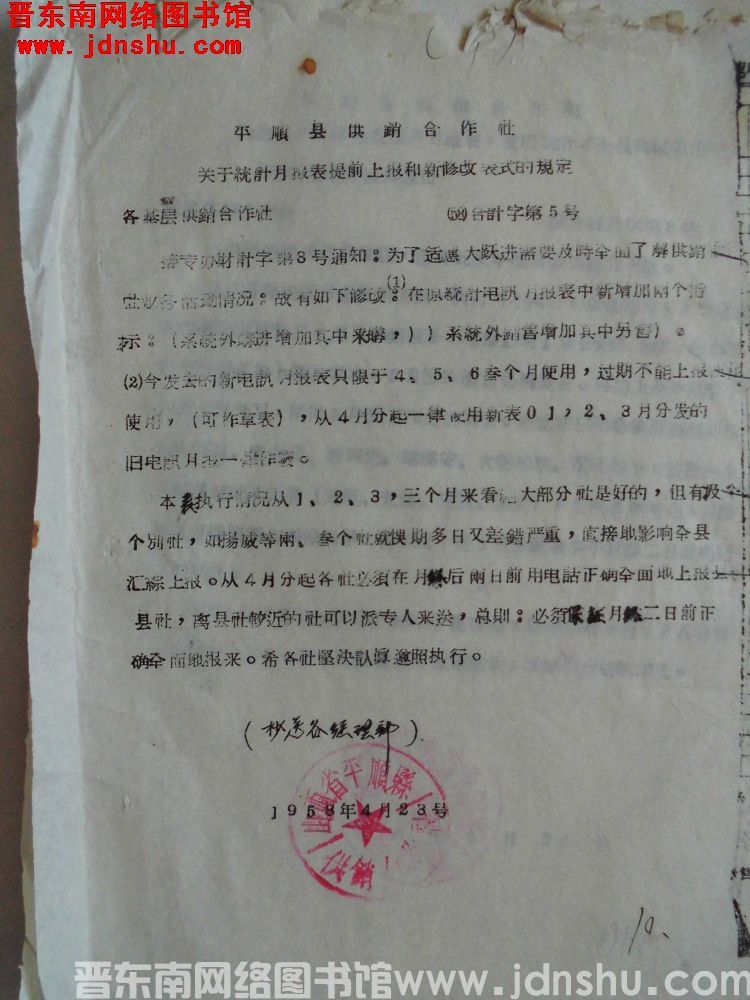 晋东南网络图书馆
www.jdnshu.com
平順县供銷合作社
关于統計月报表提前上报和新修改表式的規定
各基层供銷合作社 (58)合計字第5号
接专办財計字第8号通知:为了适应大跃进需要及時全面了解供銷
社业务活动情况:故有如下修改:(1)在原統計电訊月报表中新增加兩个指
标:(系統外購进增加其中来購,))系統外銷售增加其中另售)。
(2)今发去的新电訊月报表只限于4、5、6叁个月使用,过期不能上报
使用,(可作草表),从4月分起一律使用新表01,2、3月分发的
旧电訊月报一律作廢。
本表执行情况从1、2、3,三个月来看,大部分社是好的,但有
个別社,如揚威等兩、叁个社就悞期多日又差錯严重,直接地影响全县
汇綜上报。从4月分起各社必須在月終后兩日前用电話正确全面地上报
县社,离县社較近的社可以派专人来送,总則:必須保証月終二日前正
确全面地报来。希各社堅决認眞遵照执行。
(抄送各经理部)
山西省平順縣供銷
1958年4月23号
10.
晋东南网络图书馆www.jdnshu.com